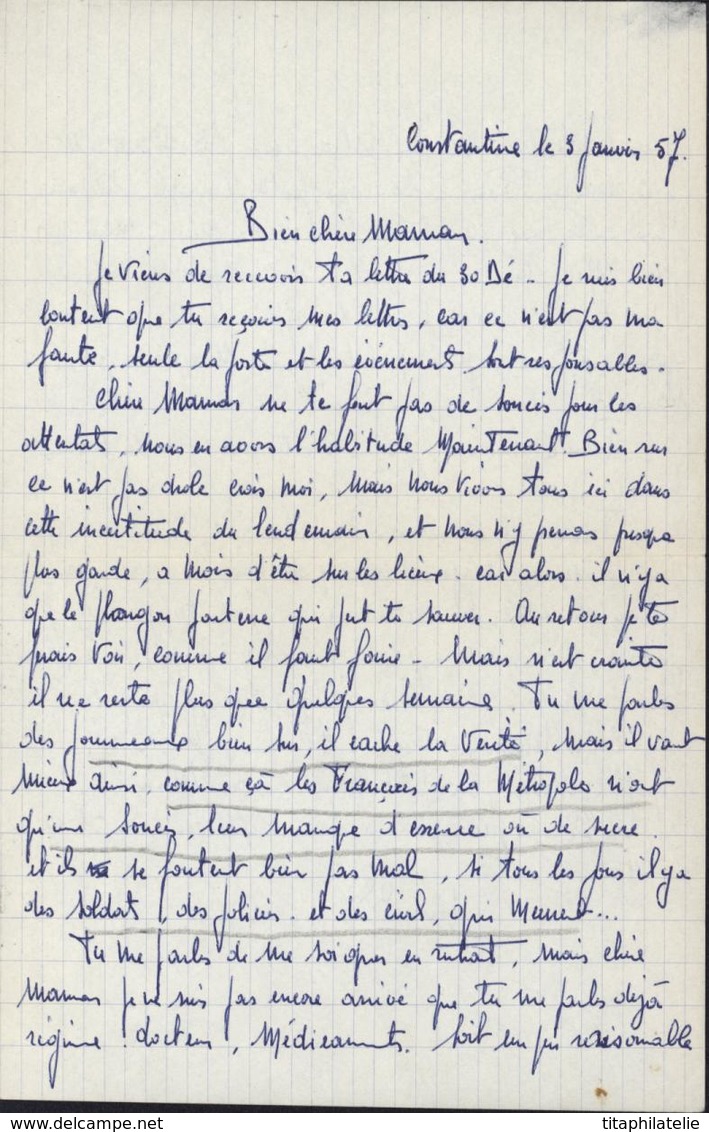 Constantine le 3 Janvier 57.
Bien chère Maman.
Je viens de recevoir ta lettre du 30 Dé - Je suis bien
content que tu reçoives mes lettres, car ce n'est pas ma
faute, seule la poste et les évènements sont responsables.
Chère Maman ne te fait pas de soucis pour les
attentats, nous en avons l'habitude Maintenant. Bien sur
ce n'est pas drole crois moi, Mais nous vivons tous ici dans
cette incertitude du lendemain, et nous n'y prenons presque
plus garde, a mois d'être sur les lieux. car alors. il n'y a
que le plongon par terre qui put te sauver. Au retour je te
ferais voir, comme il faut faire - Mais n'est crainte
il ne reste plus que quelques semaines. Tu me parles
des journeaux bien sur, il cache la Verité, Mais il vaut
mieux ainsi, comme çà les Français de la Métropole n'ont
qu'un soucis, leur manque d'essence ou de sucre.
et ils se foutent bien pas mal, si tous les jours il y a
des soldats, des policiers. et des civil, qui Meurent...
Tu me parles de me soigner en rentrant, mais chère
Maman je ne suis pas encore arrivé que tu me parles dejà
régime. docteur, Médicaments. Soit un peu raisonnable
titaphilatelie